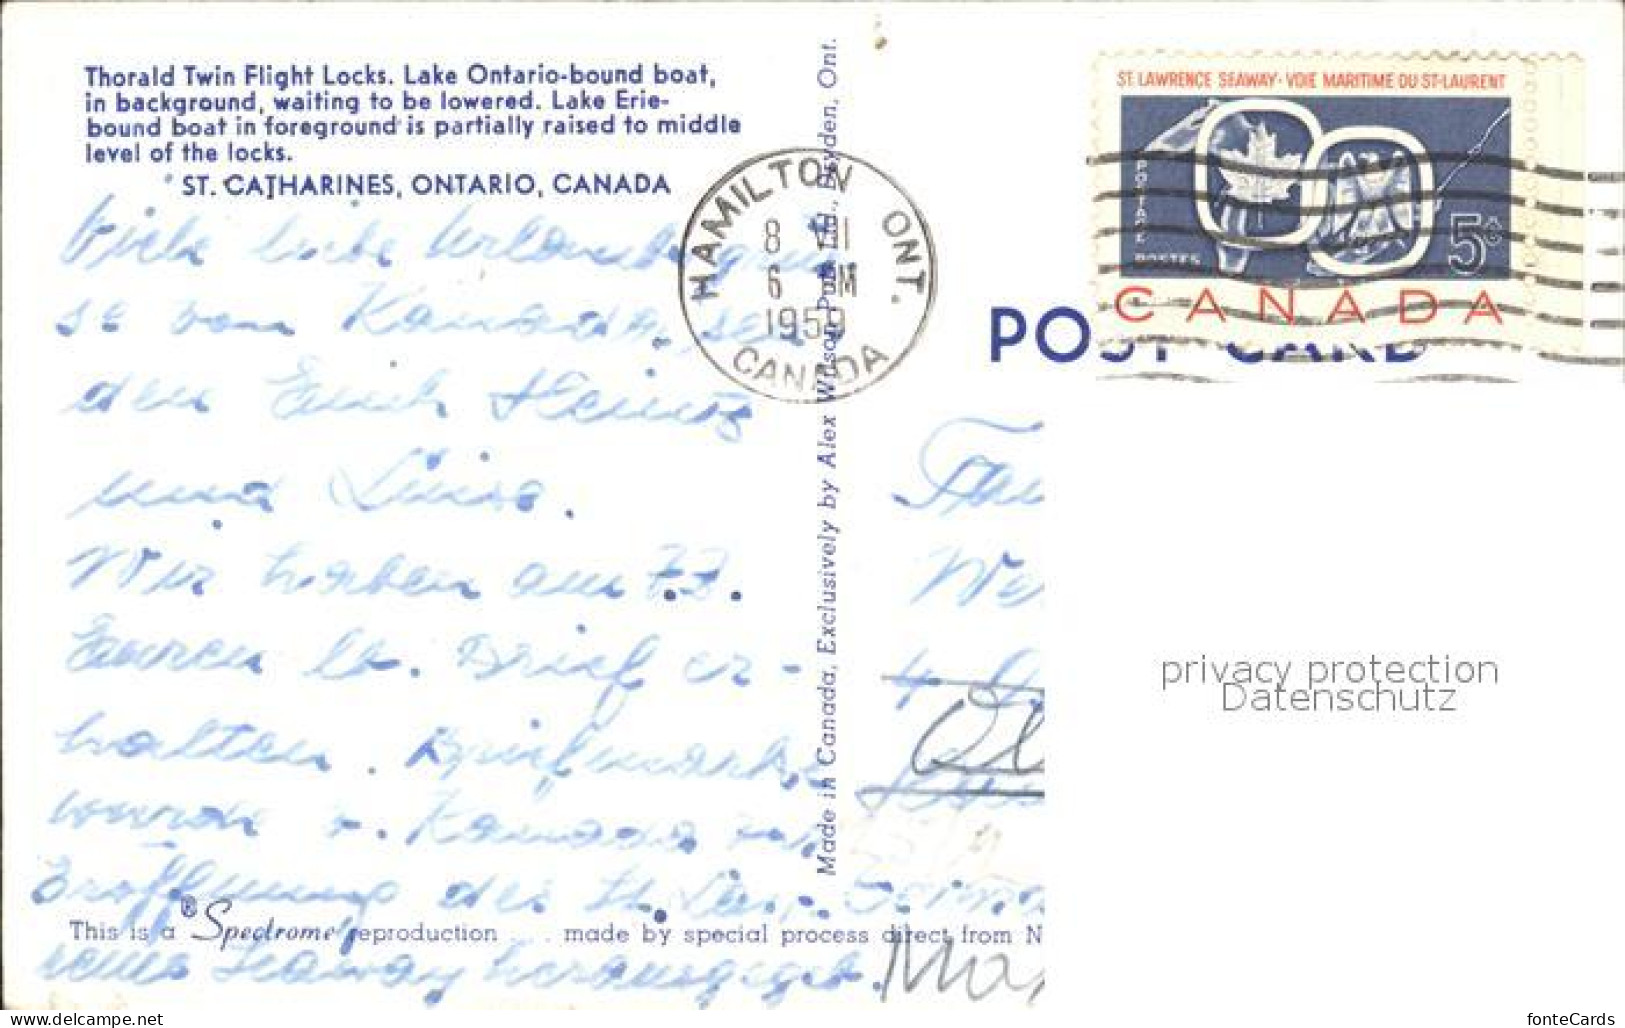 Thorald Twin Flight Locks. Lake Ontario-bound boat,
in background, waiting to be lowered. Lake Erie-
bound boat in foreground is partially raised to middle
level of the locks.
ST. CATHARINES, ONTARIO, CANADA
Viele liebe Urlaubsgrüs-
se von Kanada, sen
den Erich Heintz
und Luise.
Wir haben am 7.7.
Euren lb. Brief er-
halten. Briefmarke
wurde v. Kanada zur
Eröffnung des St. Law-
rens Seaway herausgegeb.
This is a Spectrome® reproduction . . . made by special process direct from N
Made in Canada, Exclusively by Alex Wilson Pub Ltd., Dryden, Ont.
HAMILTON ONT.
8 VII
6 PM
1959
CANADA
ST. LAWRENCE SEAWAY · VOIE MARITIME DU ST-LAURENT
POSTAGE
POSTES
5¢
CANADA
POST CARD
We
privacy protection
Datenschutz
delcampe.net
fonteCards